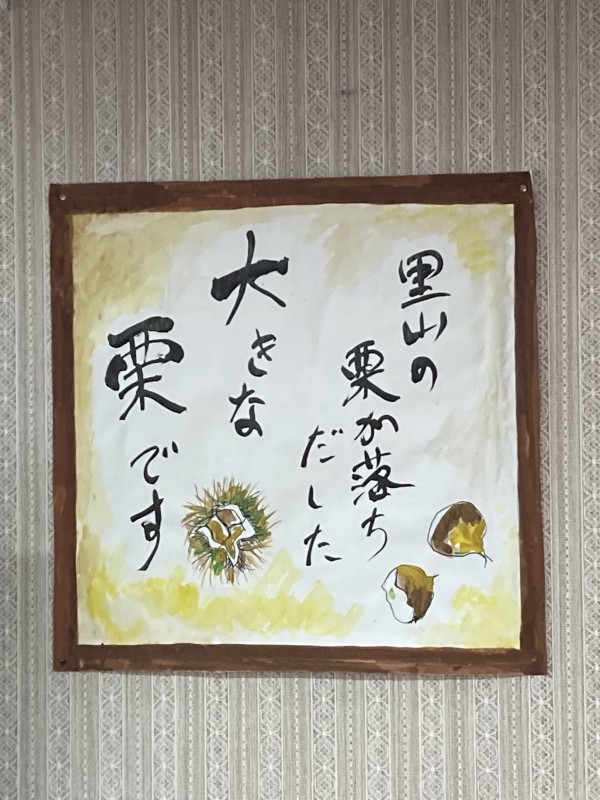 里山の
栗が落ち
だした
大きな
栗です